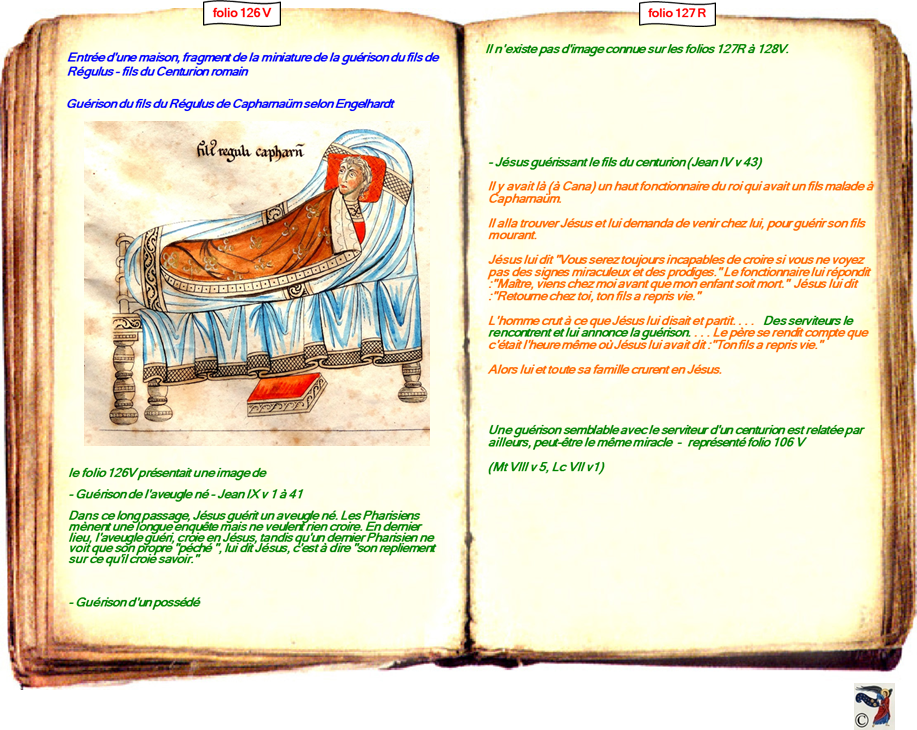 folio 126 V
Entrée d'une maison, fragment de la miniature de la guérison du fils de
Régulus - fils du Centurion romain
Guérison du fils du Régulus de Capharnaüm selon Engelhardt
reguli capharn̄
le folio 126V présentait une image de
- Guérison de l'aveugle né - Jean IX v 1 à 41
Dans ce long passage, Jésus guérit un aveugle né. Les Pharisiens
mènent une longue enquête mais ne veulent rien croire. En dernier
lieu, l'aveugle guéri, croie en Jésus, tandis qu'un dernier Pharisien ne
voit que son propre "péché ", lui dit Jésus, c'est à dire "son repliement
sur ce qu'il croie savoir."
- Guérison d'un possédé
folio 127 R
Il n'existe pas d'image connue sur les folios 127R à 128V.
- Jésus guérissant le fils du centurion (Jean IV v 43)
Il y avait là (à Cana) un haut fonctionnaire du roi qui avait un fils malade à
Capharnaüm.
Il alla trouver Jésus et lui demanda de venir chez lui, pour guérir son fils
mourant.
Jésus lui dit "Vous serez toujours incapables de croire si vous ne voyez
pas des signes miraculeux et des prodiges." Le fonctionnaire lui répondit
:"Maître, viens chez moi avant que mon enfant soit mort." Jésus lui dit
:"Retourne chez toi, ton fils a repris vie."
L'homme crut à ce que Jésus lui disait et partit. . . . Des serviteurs le
rencontrent et lui annonce la guérison. . . . Le père se rendit compte que
c'était l'heure même où Jésus lui avait dit :"Ton fils a repris vie."
Alors lui et toute sa famille crurent en Jésus.
Une guérison semblable avec le serviteur d'un centurion est relatée par
ailleurs, peut-être le même miracle - représenté folio 106 V
(Mt VIII v 5, Lc VII v1)
©